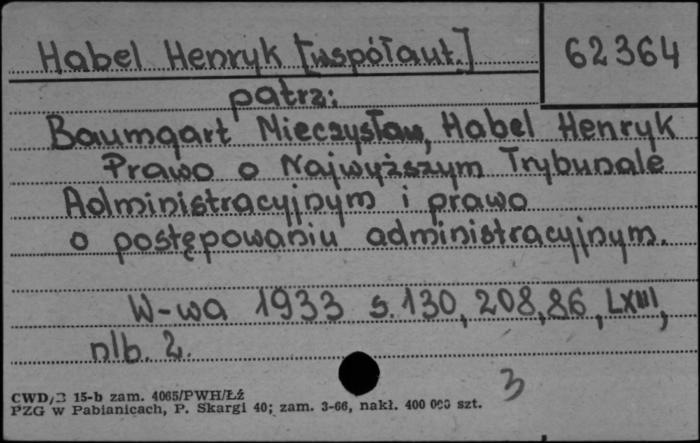 Habel Henryk [współaut.]
62364
patrz:
Baumgart Mieczysław, Habel Henryk
Prawo o Najwyższym Trybunale
Administracyjnym i prawo
o postępowaniu administracyjnym.
W-wa 1933 s. 130, 208, 86, LXIII,
nlb. 2.
3
CWD/3 15-b zam. 4065/PWH/Łź
PZG w Pabianicach, P. Skargi 40; zam. 3-66, nakł. 400 000 szt.